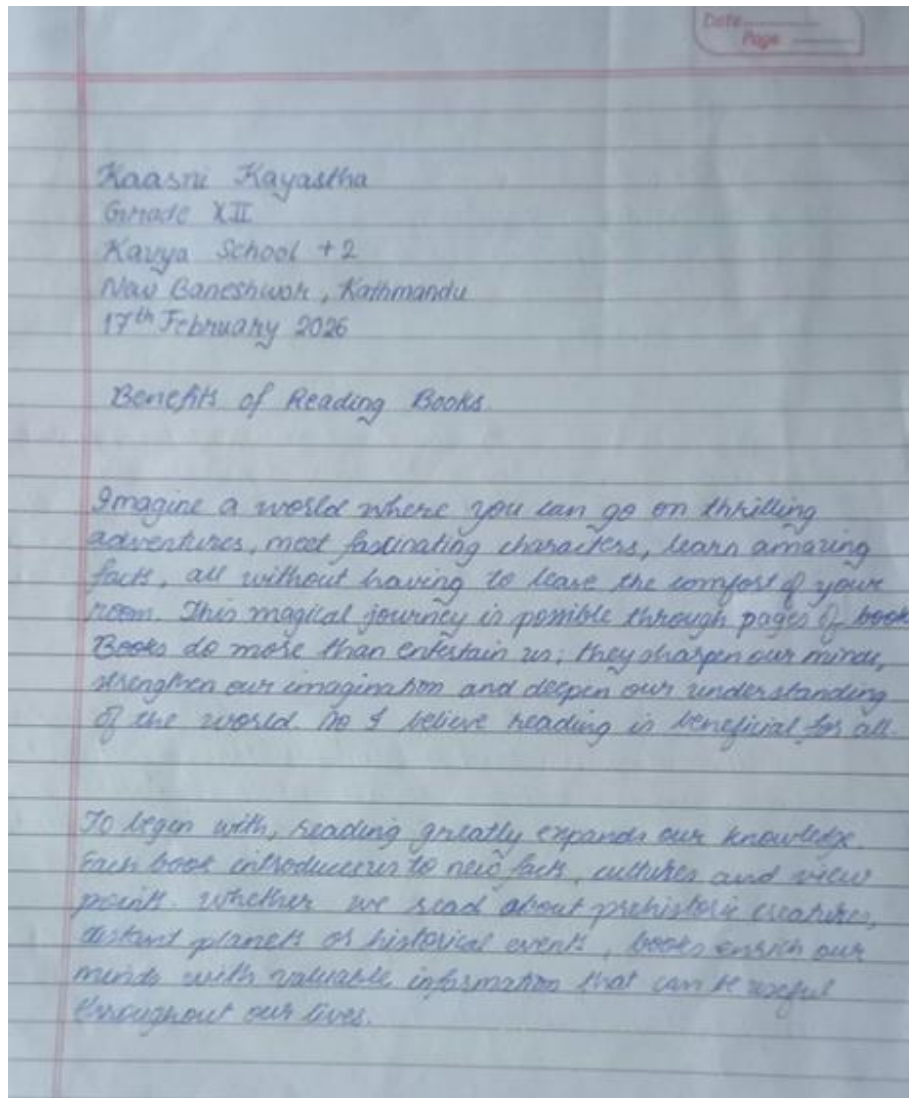 Date
Page
Kaasni Kayastha
Grade XII
Kavya School +2
Naw Baneshwor, Kathmandu
17th February 2026
Benefits of Reading Books.
Imagine a world where you can go on thrilling
adventures, meet fascinating characters, learn amazing
facts, all without having to leave the comfort of your
room. This magical journey is possible through pages of books
Books do more than entertain us; they sharpen our minds,
strengthen our imagination and deepen our understanding
of the world. So I believe reading is beneficial for all.
To begin with, reading greatly expands our knowledge.
Each book introduces us to new facts, cultures and view
points. Whether we read about prehistoric creatures,
distant planets or historical events, books enrich our
minds with valuable information that can be useful
throughout our lives.